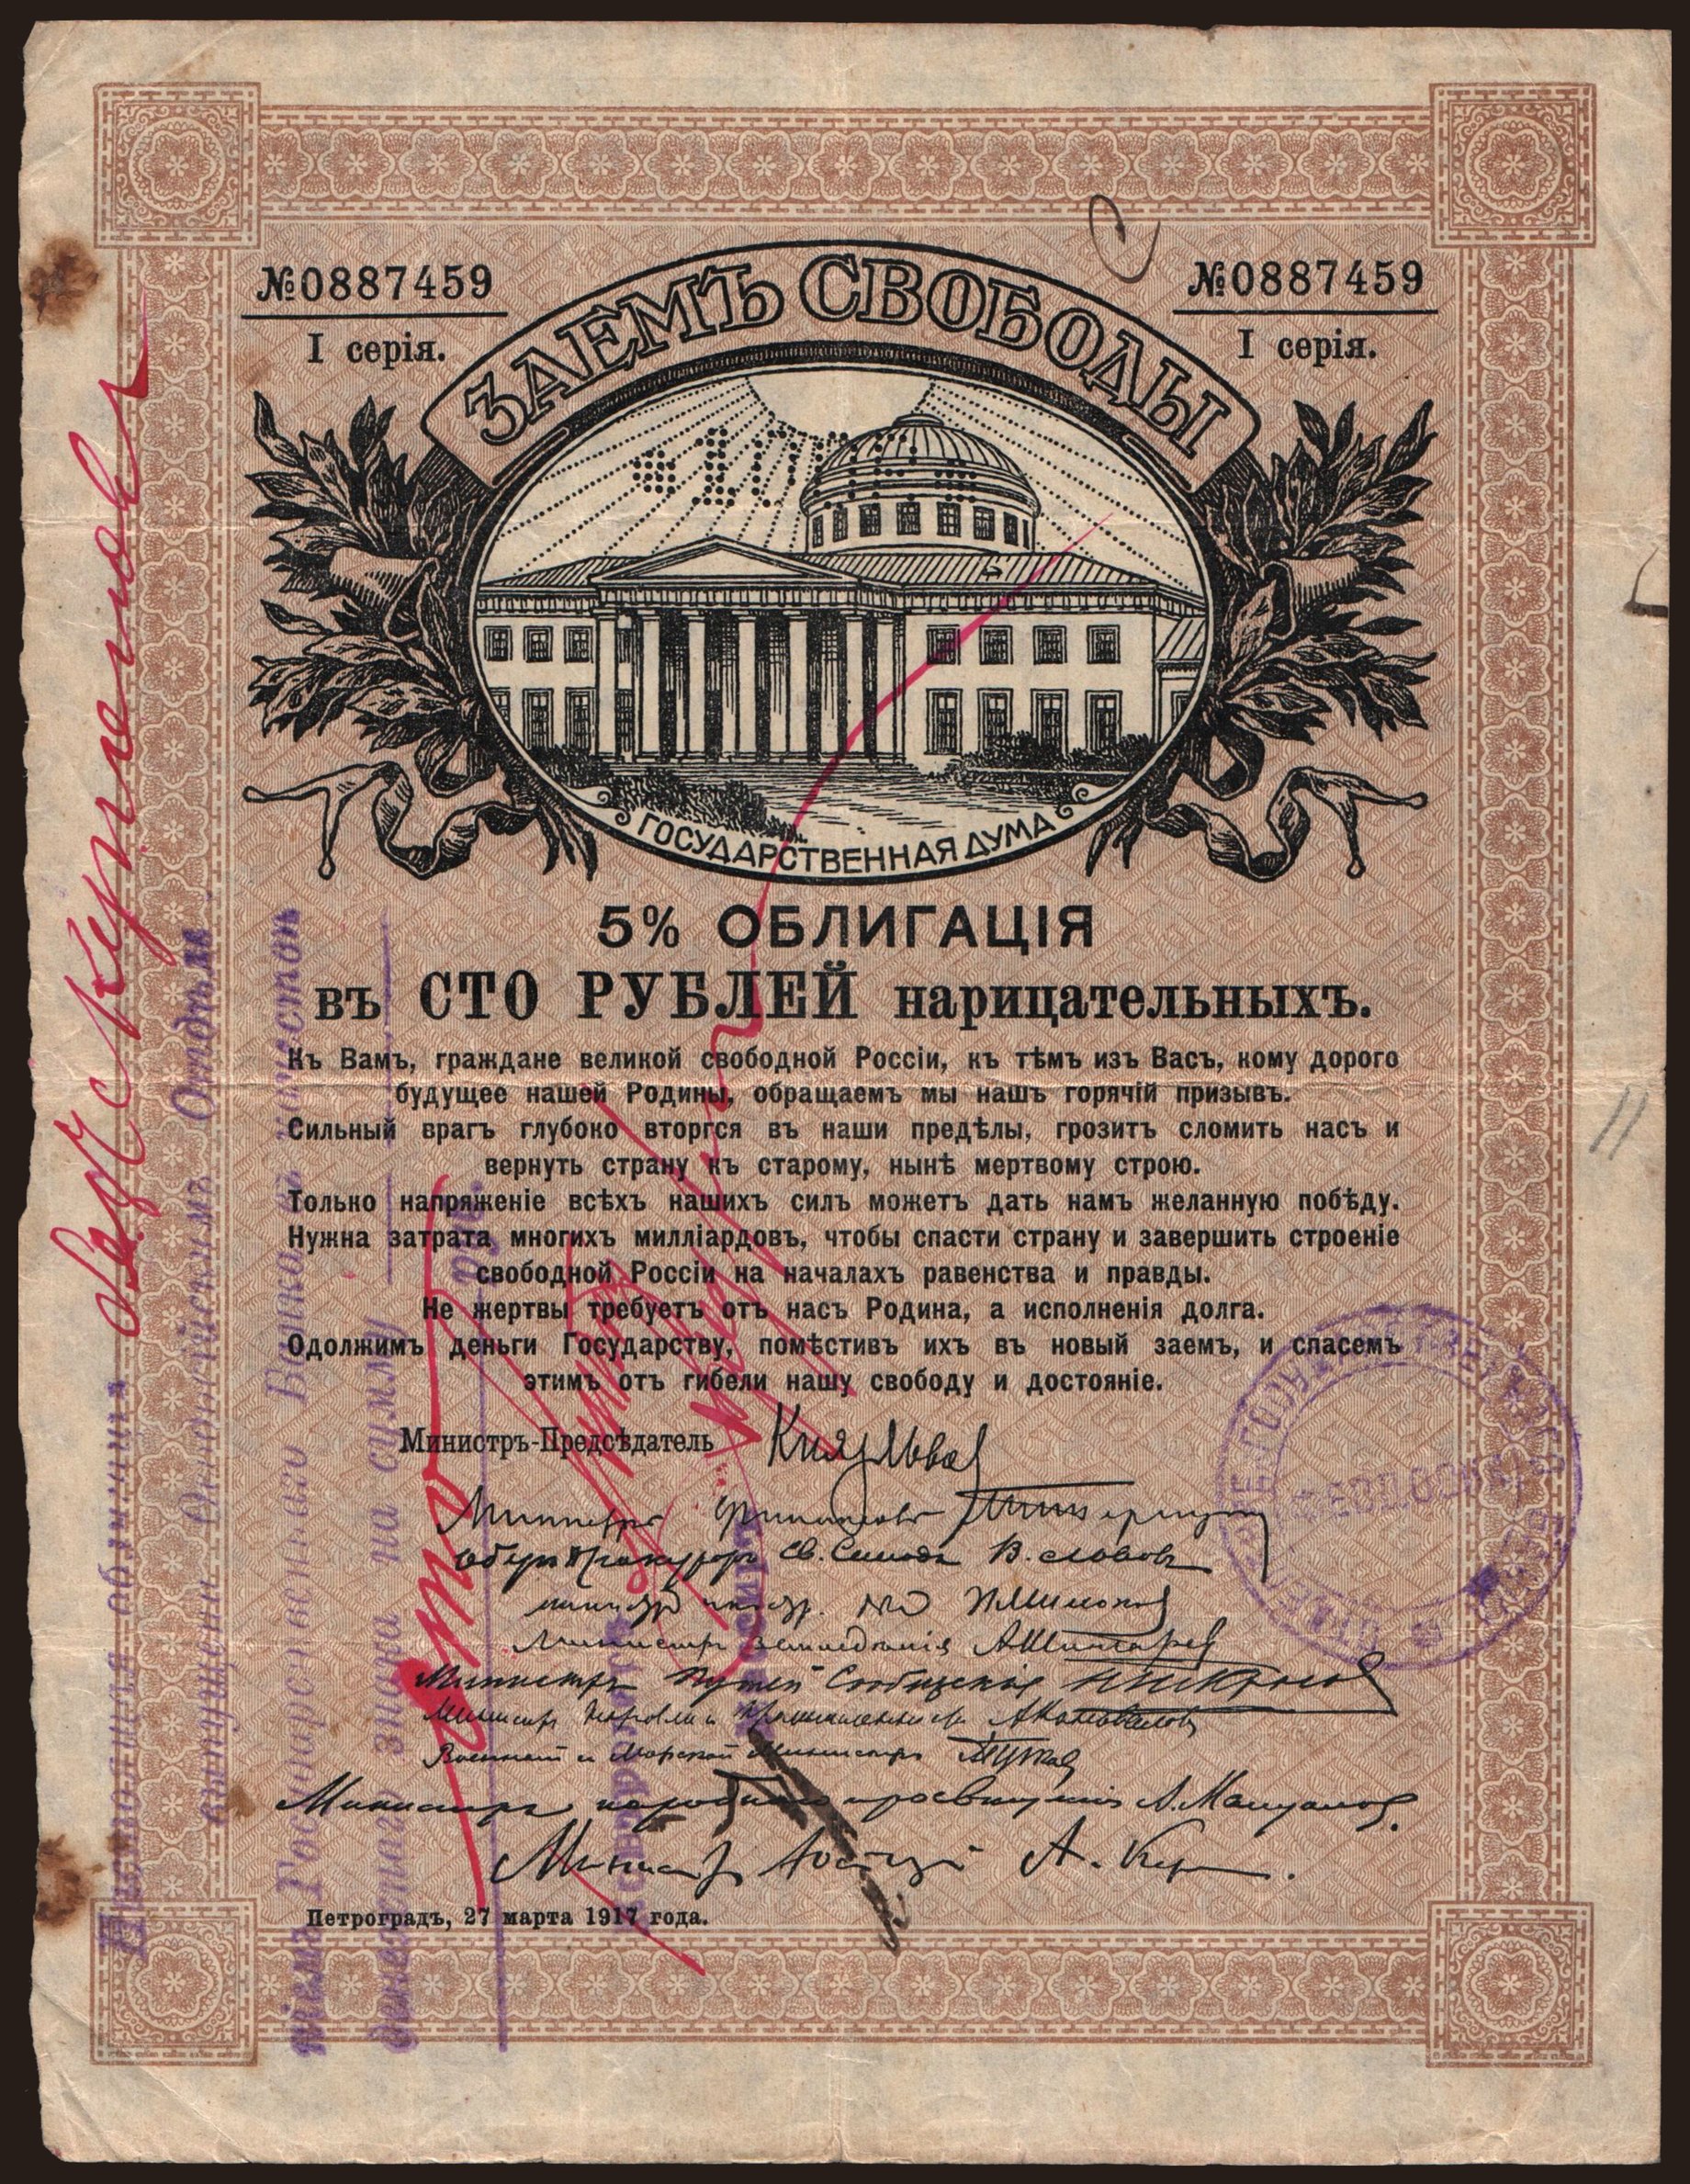 №0887459
№0887459
I серія.
I серія.
ЗАЕМЪ СВОБОДЫ
ГОСУДАРСТВЕННАЯ ДУМА
5% ОБЛИГАЦІЯ
въ СТО РУБЛЕЙ нарицательныхъ.
Къ Вамъ, граждане великой свободной Россіи, къ тѣмъ изъ Васъ, кому дорого
будущее нашей Родины, обращаемъ мы нашъ горячій призывъ.
Сильный врагъ глубоко вторгся въ наши предѣлы, грозитъ сломить насъ и
вернуть страну къ старому, нынѣ мертвому строю.
Только напряженіе всѣхъ нашихъ силъ можетъ дать намъ желанную побѣду.
Нужна затрата многихъ милліардовъ, чтобы спасти страну и завершить строеніе
свободной Россіи на началахъ равенства и правды.
Не жертвы требуетъ отъ насъ Родина, а исполненія долга.
Одолжимъ деньги Государству, помѣстивъ ихъ въ новый заемъ, и спасемъ
этимъ отъ гибели нашу свободу и достояніе.
Министръ-Предсѣдатель Князь Львов
Министръ Финансовъ
Оберъ Прокуроръ Св. Синода В. Львовъ
Министръ Земледѣлія А. Шингарев
Министръ Путей Сообщенія
Министръ Торговли и Промышленности А. Коновалов
Военный и Морской Министръ
Министръ народнаго просвѣщенія А. Мануилов.
Министръ Юстиціи А. Кер
Петроградъ, 27 марта 1917 года.
Отдѣла
Государственнаго Банка въ качествѣ
денежнаго знака на сумму
руб.
сто